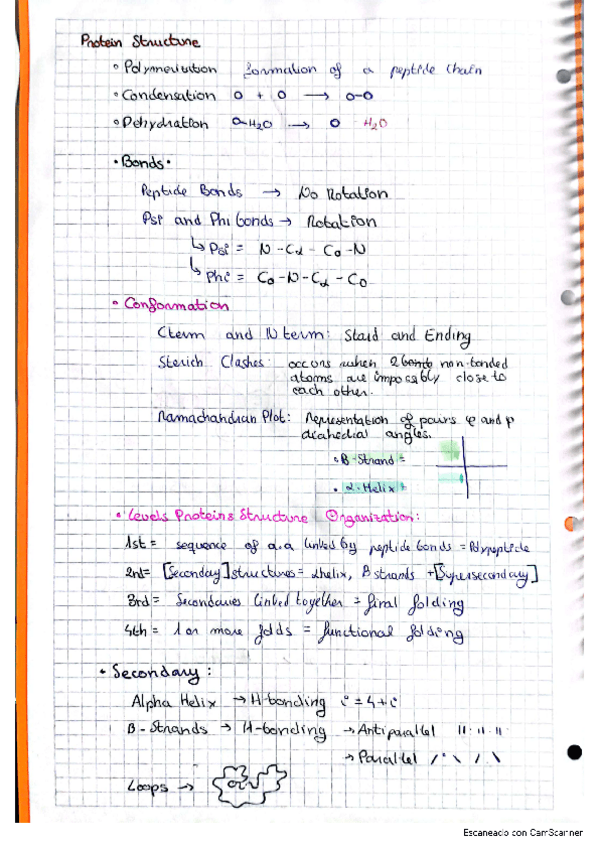 Protein Structure
• Polymerization formation of a peptide chain
• Condensation O + O → O-O
• Dehydration O-H2O → O H2O
• Bonds •
Peptide Bonds → No Rotation
Psi and Phi bonds → Rotation
↳ Psi = N - Cα - Co - N
↳ Phi = Co - N - Cα - Co
• Conformation
C term and N term: Start and Ending
Sterich Clashes: occurs when 2 non-bonded
atoms are impossibly close to
each other.
Ramachandran Plot: Representation of pairs φ and ψ
diahedral angles.
• B-Strand =
• α-Helix =
• Levels Proteins Structure Organization:
1st = sequence of a.a linked by peptide bonds = Polypeptide
2nd = [Seconday] structures = αhelix, B strands + [Supersecondary]
3rd = Secondaries linked together = final folding
4th = 1 or more folds = functional folding
• Secondary:
Alpha Helix → H-bonding i = 4 + i
B-Strands → H-bonding → Antiparallel || · || · ||
→ Parallel / · \ / · \
Loops →
Escaneado con CamScanner